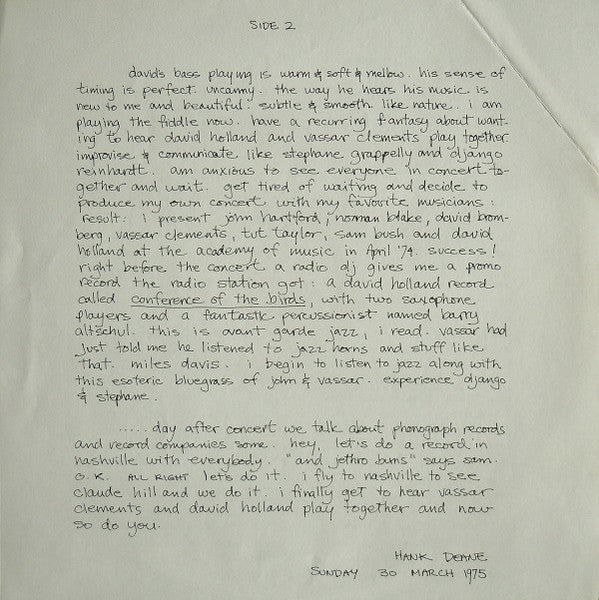 SIDE 2
david's bass playing is warm & soft & mellow. his sense of
timing is perfect. uncanny. the way he hears his music is
new to me and beautiful. subtle & smooth like nature. i am
playing the fiddle now. have a recurring fantasy about want-
ing to hear david holland and vassar clements play together
improvise & communicate like stephane grappelly and django
reinhardt. am anxious to see everyone in concert to-
gether and wait. get tired of waiting and decide to
produce my own concert with my favorite musicians:
result: i present john hartford, norman blake, david brom-
berg, vassar clements, tut taylor, sam bush and david
holland at the academy of music in April '74. success!
right before the concert a radio dj gives me a promo
record the radio station got: a david holland record
called conference of the birds, with two saxophone
players and a fantastic percussionist named barry
altschul. this is avant garde jazz, i read. vassar had
just told me he listened to jazz horns and stuff like
that. miles davis. i begin to listen to jazz along with
this esoteric bluegrass of john & vassar. experience django
& stephane.
..... day after concert we talk about phonograph records
and record companies some. hey, let's do a record in
nashville with everybody. "and jethro burns" says sam.
O.K. ALL RIGHT let's do it. i fly to nashville to see
claude hill and we do it. i finally get to hear vassar
clements and david holland play together and now
so do you.
HANK DEANE
SUNDAY 30 MARCH 1975